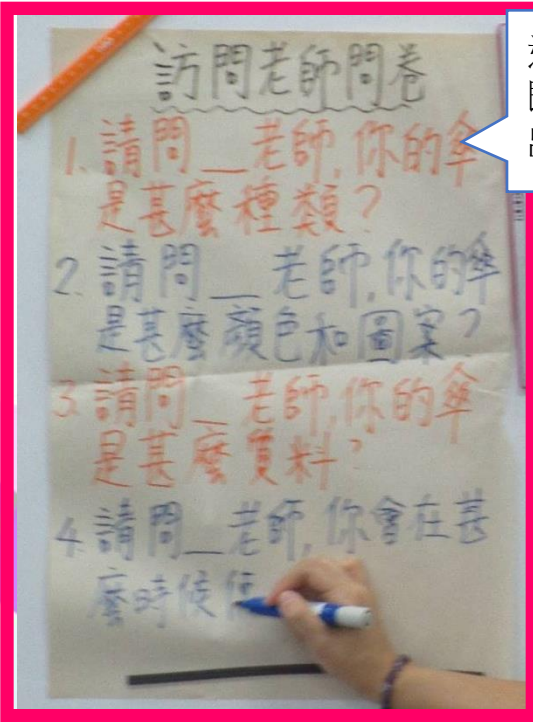 訪問老師問卷
1. 請問__老師,你的傘
是甚麼種類?
2. 請問__老師,你的傘
是甚麼顏色和圖案?
3. 請問_老師,你的傘
是甚麼質料?
4. 請問__老師,你會在甚
麼時候